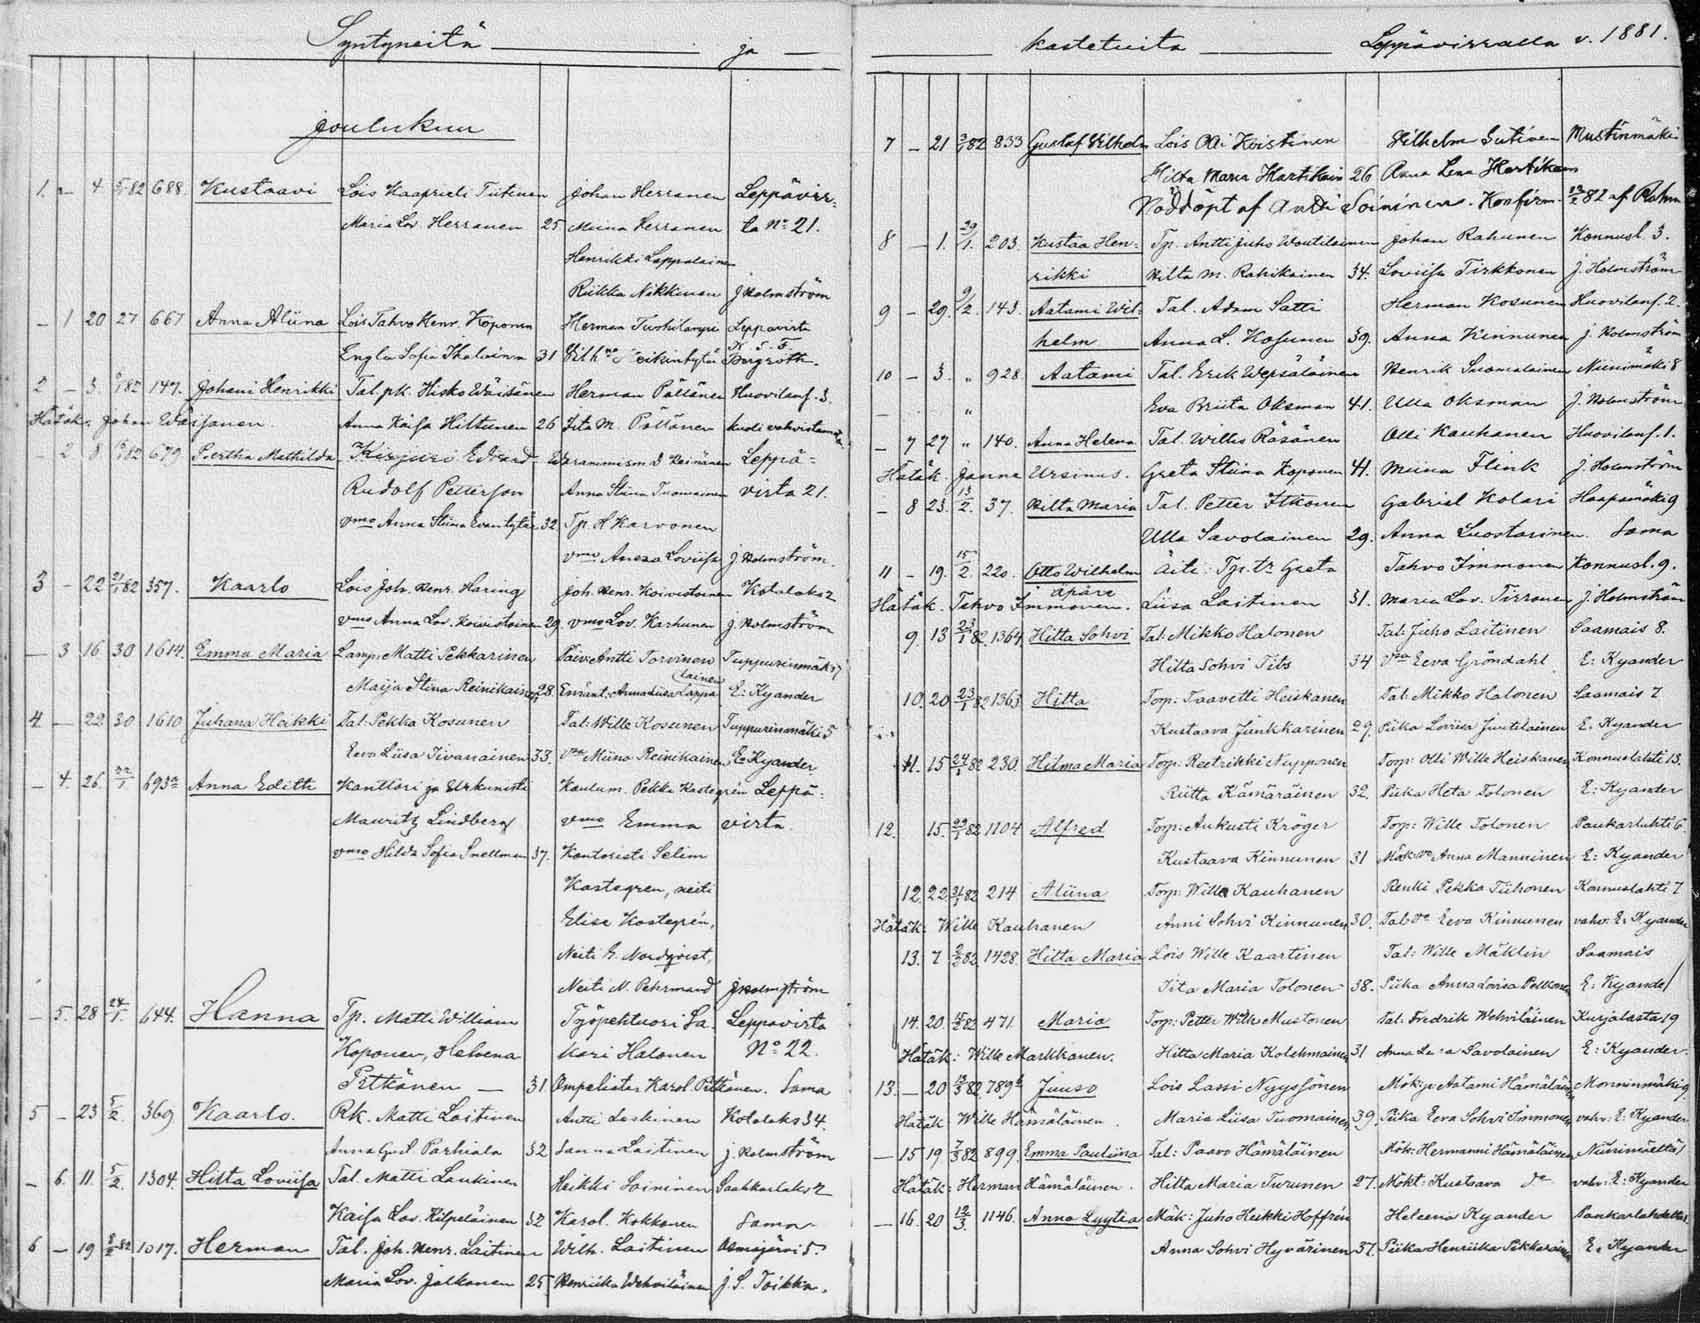 Syntyneitä ja
Joulukuu
1. - 4 5/1 82 688. Kustaavi Lois Kaaprieli Tiitinen Johan Herranen Leppävir-
Maria Lov. Herranen 25 Miina Herranen ta No 21.
Henrikki Leppalainen
Riikka Nikkinen J. Holmström
- 1 20 27 667 Anna Aliina Lois Tahvo Henr. Koponen Herman Leppävirta
Engla Sofia Ikalainen 31
2 - 3. 147. Johani Henrikki Tal. pk. Hisko Wäisänen Herman Pöllänen Huovilanl. 3.
Hätäk. Johan Wäisänen. Anna Kaisa Hiltunen 26 Iita M. Pöllänen
- 2 8 679 Pertha Mathilda Kirjuri Edvard Leppä-
Rudolf Petterson Anna Stiina Tuomainen virta 21.
vmo Anna Stiina 32 Tp. A Karvonen
vmo Lovisa J. Holmström.
3 - 22 21/1 82 357. Kaarlo Lois Joh. Henr. Haring Joh. Henr. Koivistoinen Kotalaks 2
vmo Anna Lov. Koivistoinen 29. vmo Lov. Karhunen J. Holmström
- 3 16 30 1614. Emma Maria Lamp: Matti Pekkarinen Päiv: Antti Torvinen Tuppurinmäki 7
Maija Stina Reinikainen 28. Lappalainen E: Kyander
4 - 22 30 1610 Juhana Heikki Tal: Pekka Kosunen Tal: Wille Kosunen Tuppurinmäki 5
Eeva Liisa Iivanainen 33. Miina Reinikainen E: Kyander
- 4. 26. 22/1 693a Anna Edith Kanttori ja Urkunisti Kaulum. Pekka Kastegrén Leppä-
Mauritz Lindberg vmo Emma virta.
vmo Hilda Sofia Snellman 37. Kontoristi Selim
Kastegren, neiti
Elise Kastegrén,
Neiti G. Nordqvist,
Neiti N. Pehrmand J. Holmström
- 5. 28 24/1. 644. Hanna Tp. Matti William Työpehtuori Ja- Leppävirta
Koponen, Helena kari Halonen No 22.
Pitkänen — 31 Ompelister Karol. Pitkänen. Sama
5 - 23 5/2. 369 Kaarlo. Rk. Matti Laitinen Antti Laskinen Kotalaks 34.
Anna Parhiala 32 Sanna Laitinen J. Holmström
- 6. 11. 5/2. 1304. Hilta Loviisa Tal. Matti Laukinen Heikki Soininen Saahkarlaks 2
Kaisa Lov. Kilpeläinen 32 Karol. Kokkonen Sama
6 - 19 82 1017. Herman Tal. Joh. Henr. Laitinen Wilh. Laitinen Osmajärvi 5.
Maria Lov. Jalkanen 25 Henriikka Wehviläinen J. S. Toikka.
kastetuita Leppävirralla v. 1881.
7 - 21 82 833 Gustaf Vilhelm Lois Olli Koistinen Vilhelm Mustinmäki
Hilta Maria Hartikain 26 Anna Lena Hartikain
Nöddöpt af Antti Soininen. Konfirm. 82 af Rahm
8 - 1. 29/1. 203. Kustaa Hen- Tp. Antti Juho Woutilainen Johan Rahunen Konnusl. 3.
rikki Hilta M. Rahikainen 34. Loviisa Tirkkonen J. Holmström
9 - 29. 9/2. 143. Aatami Wil- Tal. Adam Satti Herman Kosunen Huovilanl. 2.
helm Anna L. Kosunen 39. Anna Kinnunen J. Holmström
10 - 3. " 928. Aatami Tal. Erik Wepsäläinen Henrik Suomalainen Niinimäki 8
" Eva Briita Oksman 41. Ulla Oksman J. Holmström
- 7 27 " 140. Anna Helena Tal. Willes Räsänen Olli Kauhanen Huovilanl. 1.
Hätäk. Janne Ursinus. Greta Stiina Koponen 41. Miina Flink J. Holmström
- 8 23. 13/2. 37. Hilta Maria Tal. Petter Itkonen Gabriel Kolari Haapamäki 9
Ulla Savolainen 29. Anna Luostarinen. Sama
11 - 19. 15/2. 220. Otto Wilhelm Äiti: Tp. tr Greta Tahvo Immonen Konnusl. 9.
äpärä
Hätäk. Tahvo Immonen. Liisa Laitinen 31. Maria Lov. Tirronen J. Holmström
9. 13 23/1 82. 1364. Hilta Sohvi Tal: Mikko Halonen Tal: Juho Laitinen Saamais 8.
Hilta Sohvi Tits 34 Eeva Gröndahl E: Kyander
10. 20 23/1 82 1363 Hilta Torp: Taavetti Heiskanen Tal: Mikko Halonen Saamais 7
Kustaava Junkkarinen 29. Piika Loviisa Juutilainen E: Kyander
11. 15 24/1 82 230. Hilma Maria Torp: Reetrikki Nupponen Torp: Olli Wille Heiskanen Konnuslahti 13.
Riitta Kämäräinen 32. Piika Heta Tolonen E: Kyander
12. 15. 29/1 82 1104 Alfred Torp: Aukusti Kröger Torp: Wille Tolonen Paukarlahti 6.
Kustaava Kinnunen 31 Anna Manninen E: Kyander
12. 22 31/1 82 214 Aliina Torp: Wille Kauhanen Renki Pekka Tiihonen Konnuslahti 7
Hätäk: Wille Kauhanen Anni Sohvi Kinnunen 30. Eeva Kinnunen vahv: E: Kyander
13. 7 82 1428. Hilta Maria Lois Wille Kaartinen Tal: Wille Mäklin Saamais
Iita Maria Tolonen 38. Piika Anna Loisa Pelkonen E: Kyander
14. 20 82 471 Maria Torp: Petter Wille Mustonen Tal: Fredrik Wehviläinen Kurjalasta 19
Hätäk: Wille Markkanen. Hilta Maria Kolehmainen 31 Savolainen E: Kyander.
13. - 20 82 789b Juuso Lois Lassi Nyyssönen Mök: Aatami Hämäläinen Monninmäki 9.
Hätäk Wille Hämäläinen. Maria Liisa Tuomainen 39. Piika Eeva Sohvi Immonen vahv: E: Kyander
- 15 19 7/3 82 899. Emma Pauliina Tal: Paavo Hämäläinen Mök: Hermanni Hämäläinen Niinimäeltä 1
Hätäk: Herman Hämäläinen. Hilta Maria Turunen 27. Mökt: Kustaava do vahv: E: Kyander
- 16. 20 12/3 1146. Anna Lyytia Mäk: Juho Heikki Hoffrén Heleena Kyander Paukarlahdelta
Anna Sohvi Hyvärinen 37. Piika Henriikka Pekkarainen E: Kyander